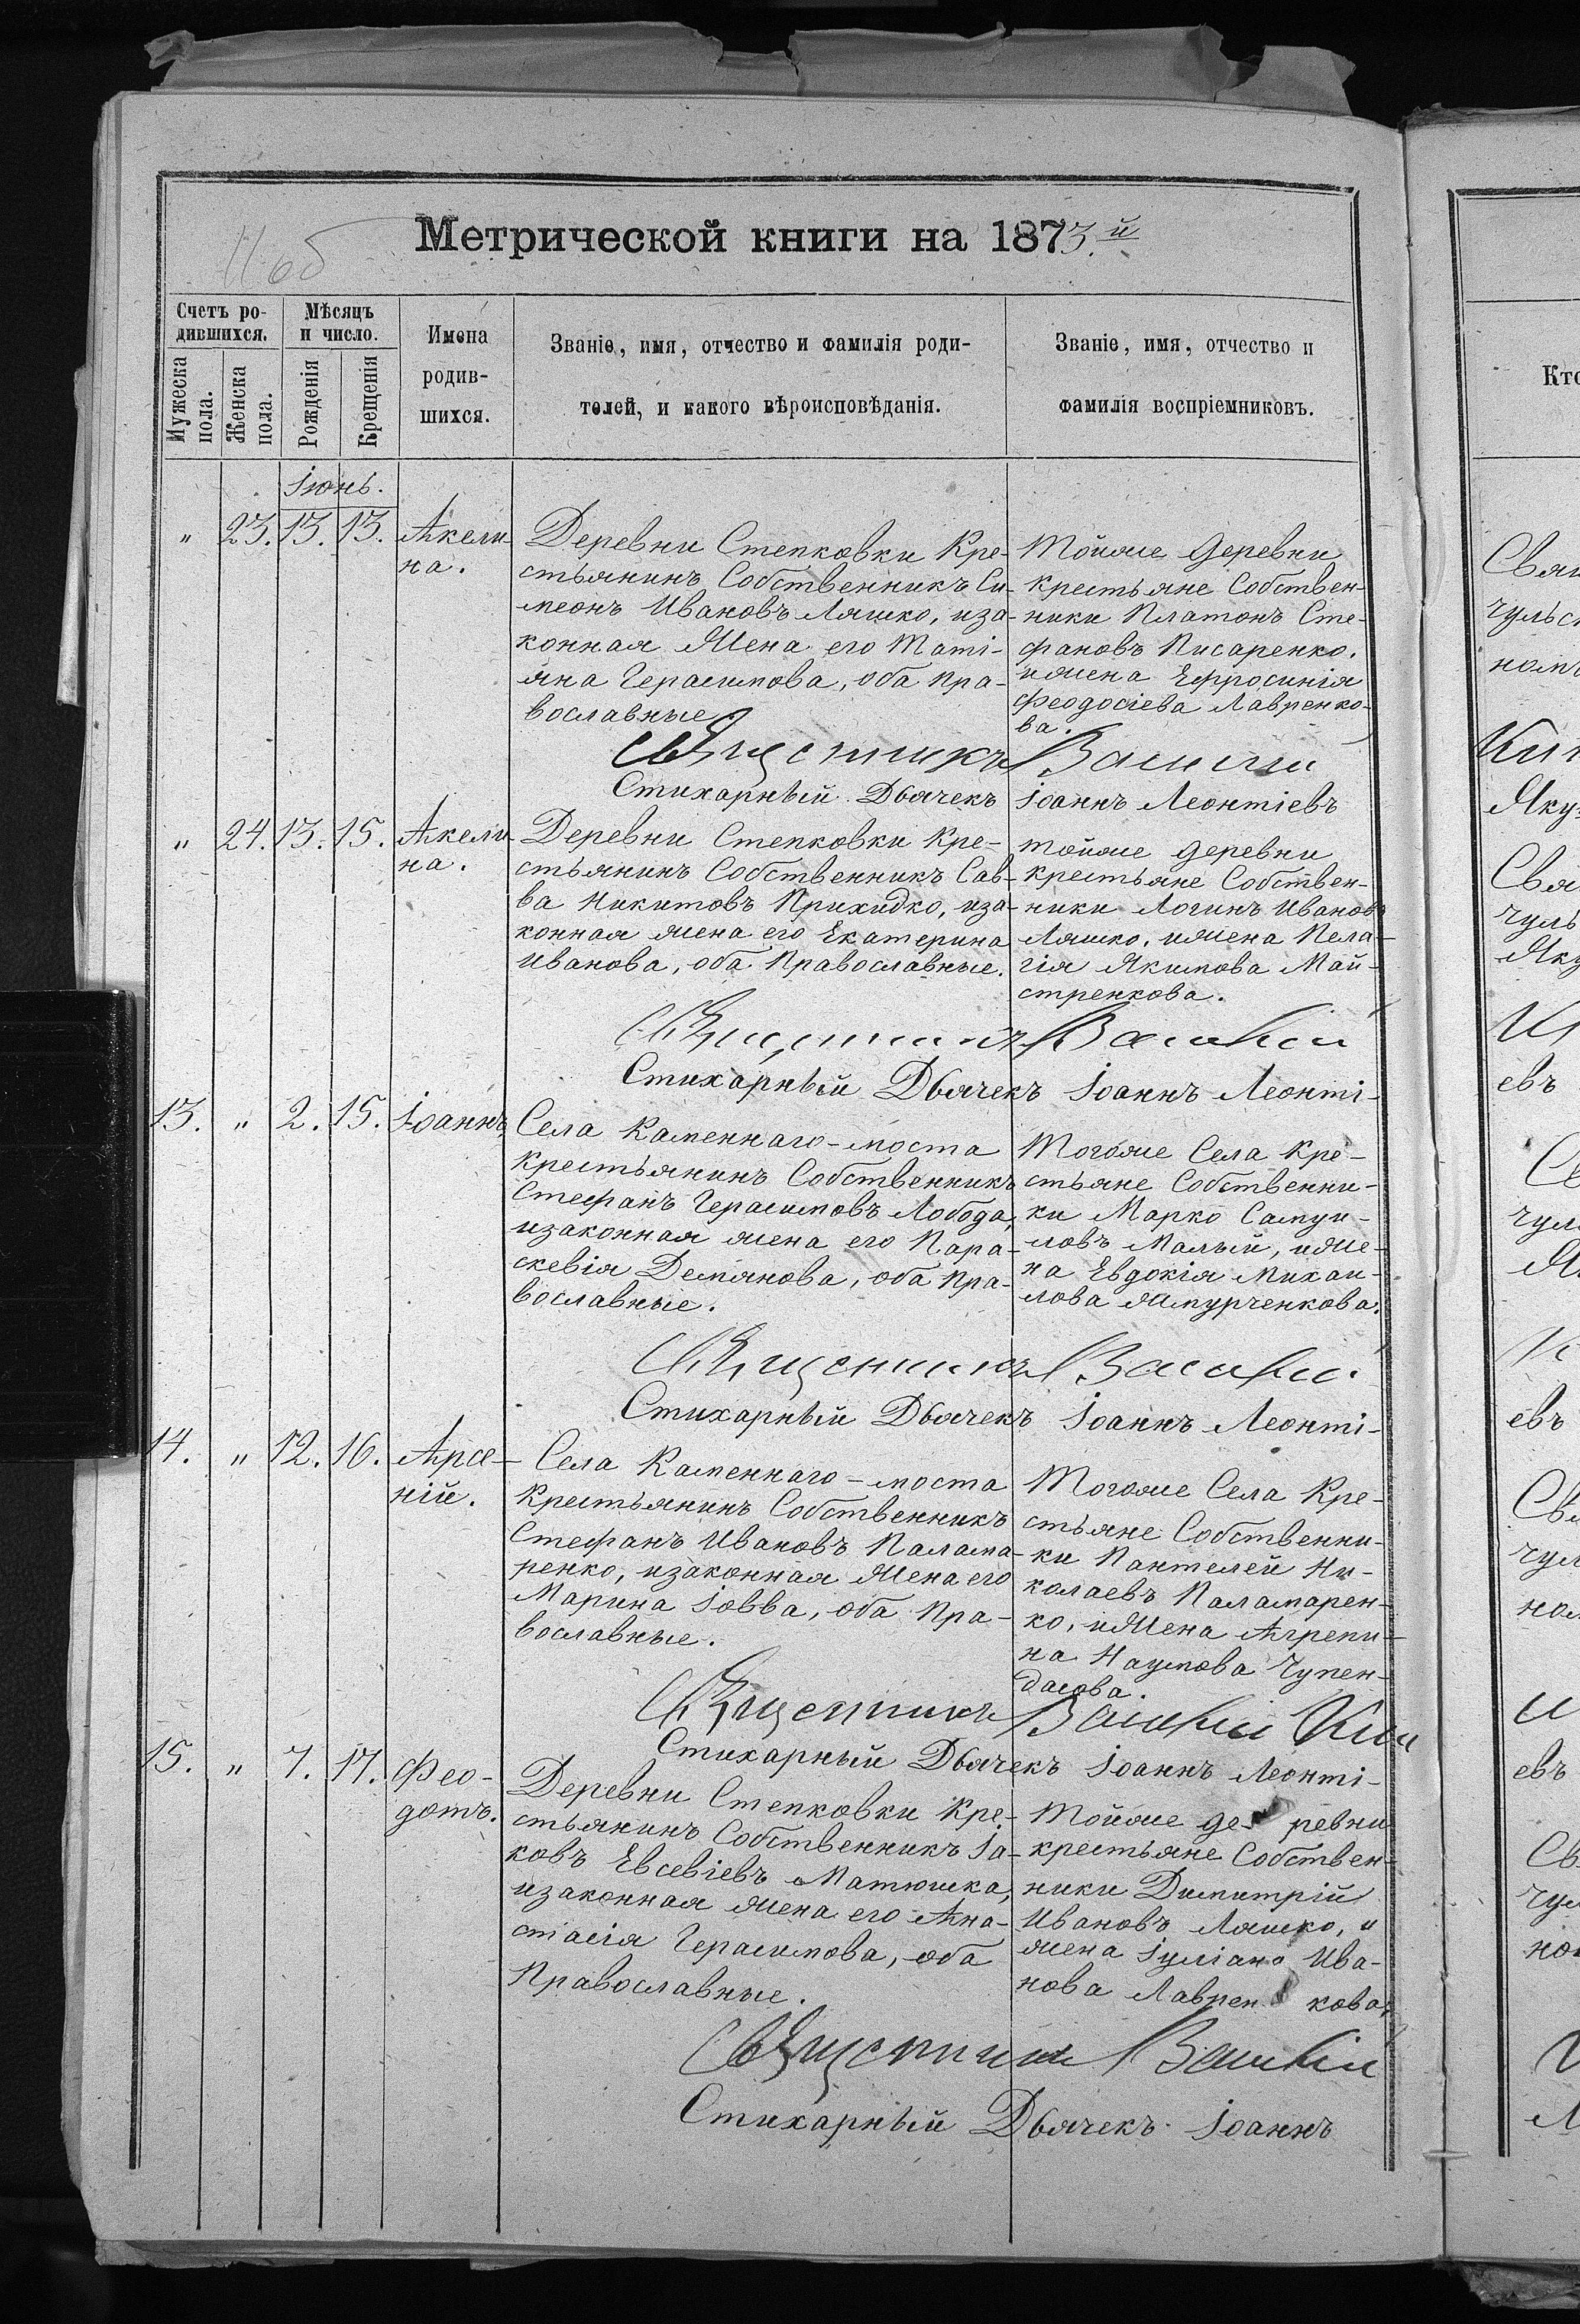 Метрической книги на 1873.й
Счетъ ро-
дившихся.
Мѣсяцъ
и число.
Мужеска
пола.
Женска
пола.
Рожденія
Крещенія
Имена
родив-
шихся.
Званіе, имя, отчество и фамилія роди-
телей, и какого вѣроисповѣданія.
Званіе, имя, отчество и
фамилія воспріемниковъ.
Кто
Іюнь.
" 23. 13. 13. Акели-
на.
Деревни Степковки Кре-
стьянинъ Собственникъ Си-
меонъ Ивановъ Ляшко, иза-
конная Жена его Таті-
яна Герасимова, оба пра-
вославные
Тойже деревни
крестьяне Собствен-
ники Платонъ Сте-
фановъ Писаренко.
ижена Ефросинія
Феодосіева Лавренко-
ва.
Священникъ Василій
Стихарный Дьячекъ Іоаннъ Леонтіевъ
" 24. 13. 15. Акели-
на.
Деревни Степковки Кре-
стьянинъ Собственникъ Сав-
ва Никитовъ Прихидко, иза-
конная жена его Екатерина
Иванова, оба Православные.
тойже деревни
крестьяне Собствен-
ники Логинъ Ивановъ
Ляшко, ижена Пела-
гія Якимова Май-
стренкова.
Священникъ Василій
Стихарный Дьячекъ Іоаннъ Леонті-
13. " 2. 15. Іоаннъ
Села Каменнаго-моста
Крестьянинъ Собственникъ
Стефанъ Герасимовъ Лобода,
изаконная жена его Пара-
скевія Демянова, оба пра-
вославные.
Тогоже Села Кре-
стьяне Собственни-
ки Марко Самуи-
ловъ Малый, иже-
на Евдокія Михаи-
лова Жмурченкова.
Священникъ Василій
Стихарный Дьячекъ Іоаннъ Леонті-
14. " 12. 16. Арсе-
ній.
Села Каменнаго-моста
Крестьянинъ Собственникъ
Стефанъ Ивановъ Палама-
ренко, изаконная Жена его
Марина Іовва, оба Пра-
вославные.
Тогоже Села Кре-
стьяне Собственни-
ки Пантелей Ни-
колаевъ Паламарен-
ко, иЖена Агрепи-
на Наумова Чупен-
дасова.
Священникъ Василій
Стихарный Дьячекъ Іоаннъ Леонті-
15. " 7. 17. Фео-
дотъ.
Деревни Степковки Кре-
стьянинъ Собственникъ Іа-
ковъ Евсевіевъ Матюшка,
изаконная жена его Ана-
стасія Герасимова, оба
Православные.
Тойже де ревни
крестьяне Собствен-
ники Димитрій
Ивановъ Ляшко, и
жена Іуліана Ива-
нова Лаврен кова.
Священникъ Василій
Стихарный Дьячекъ Іоаннъ